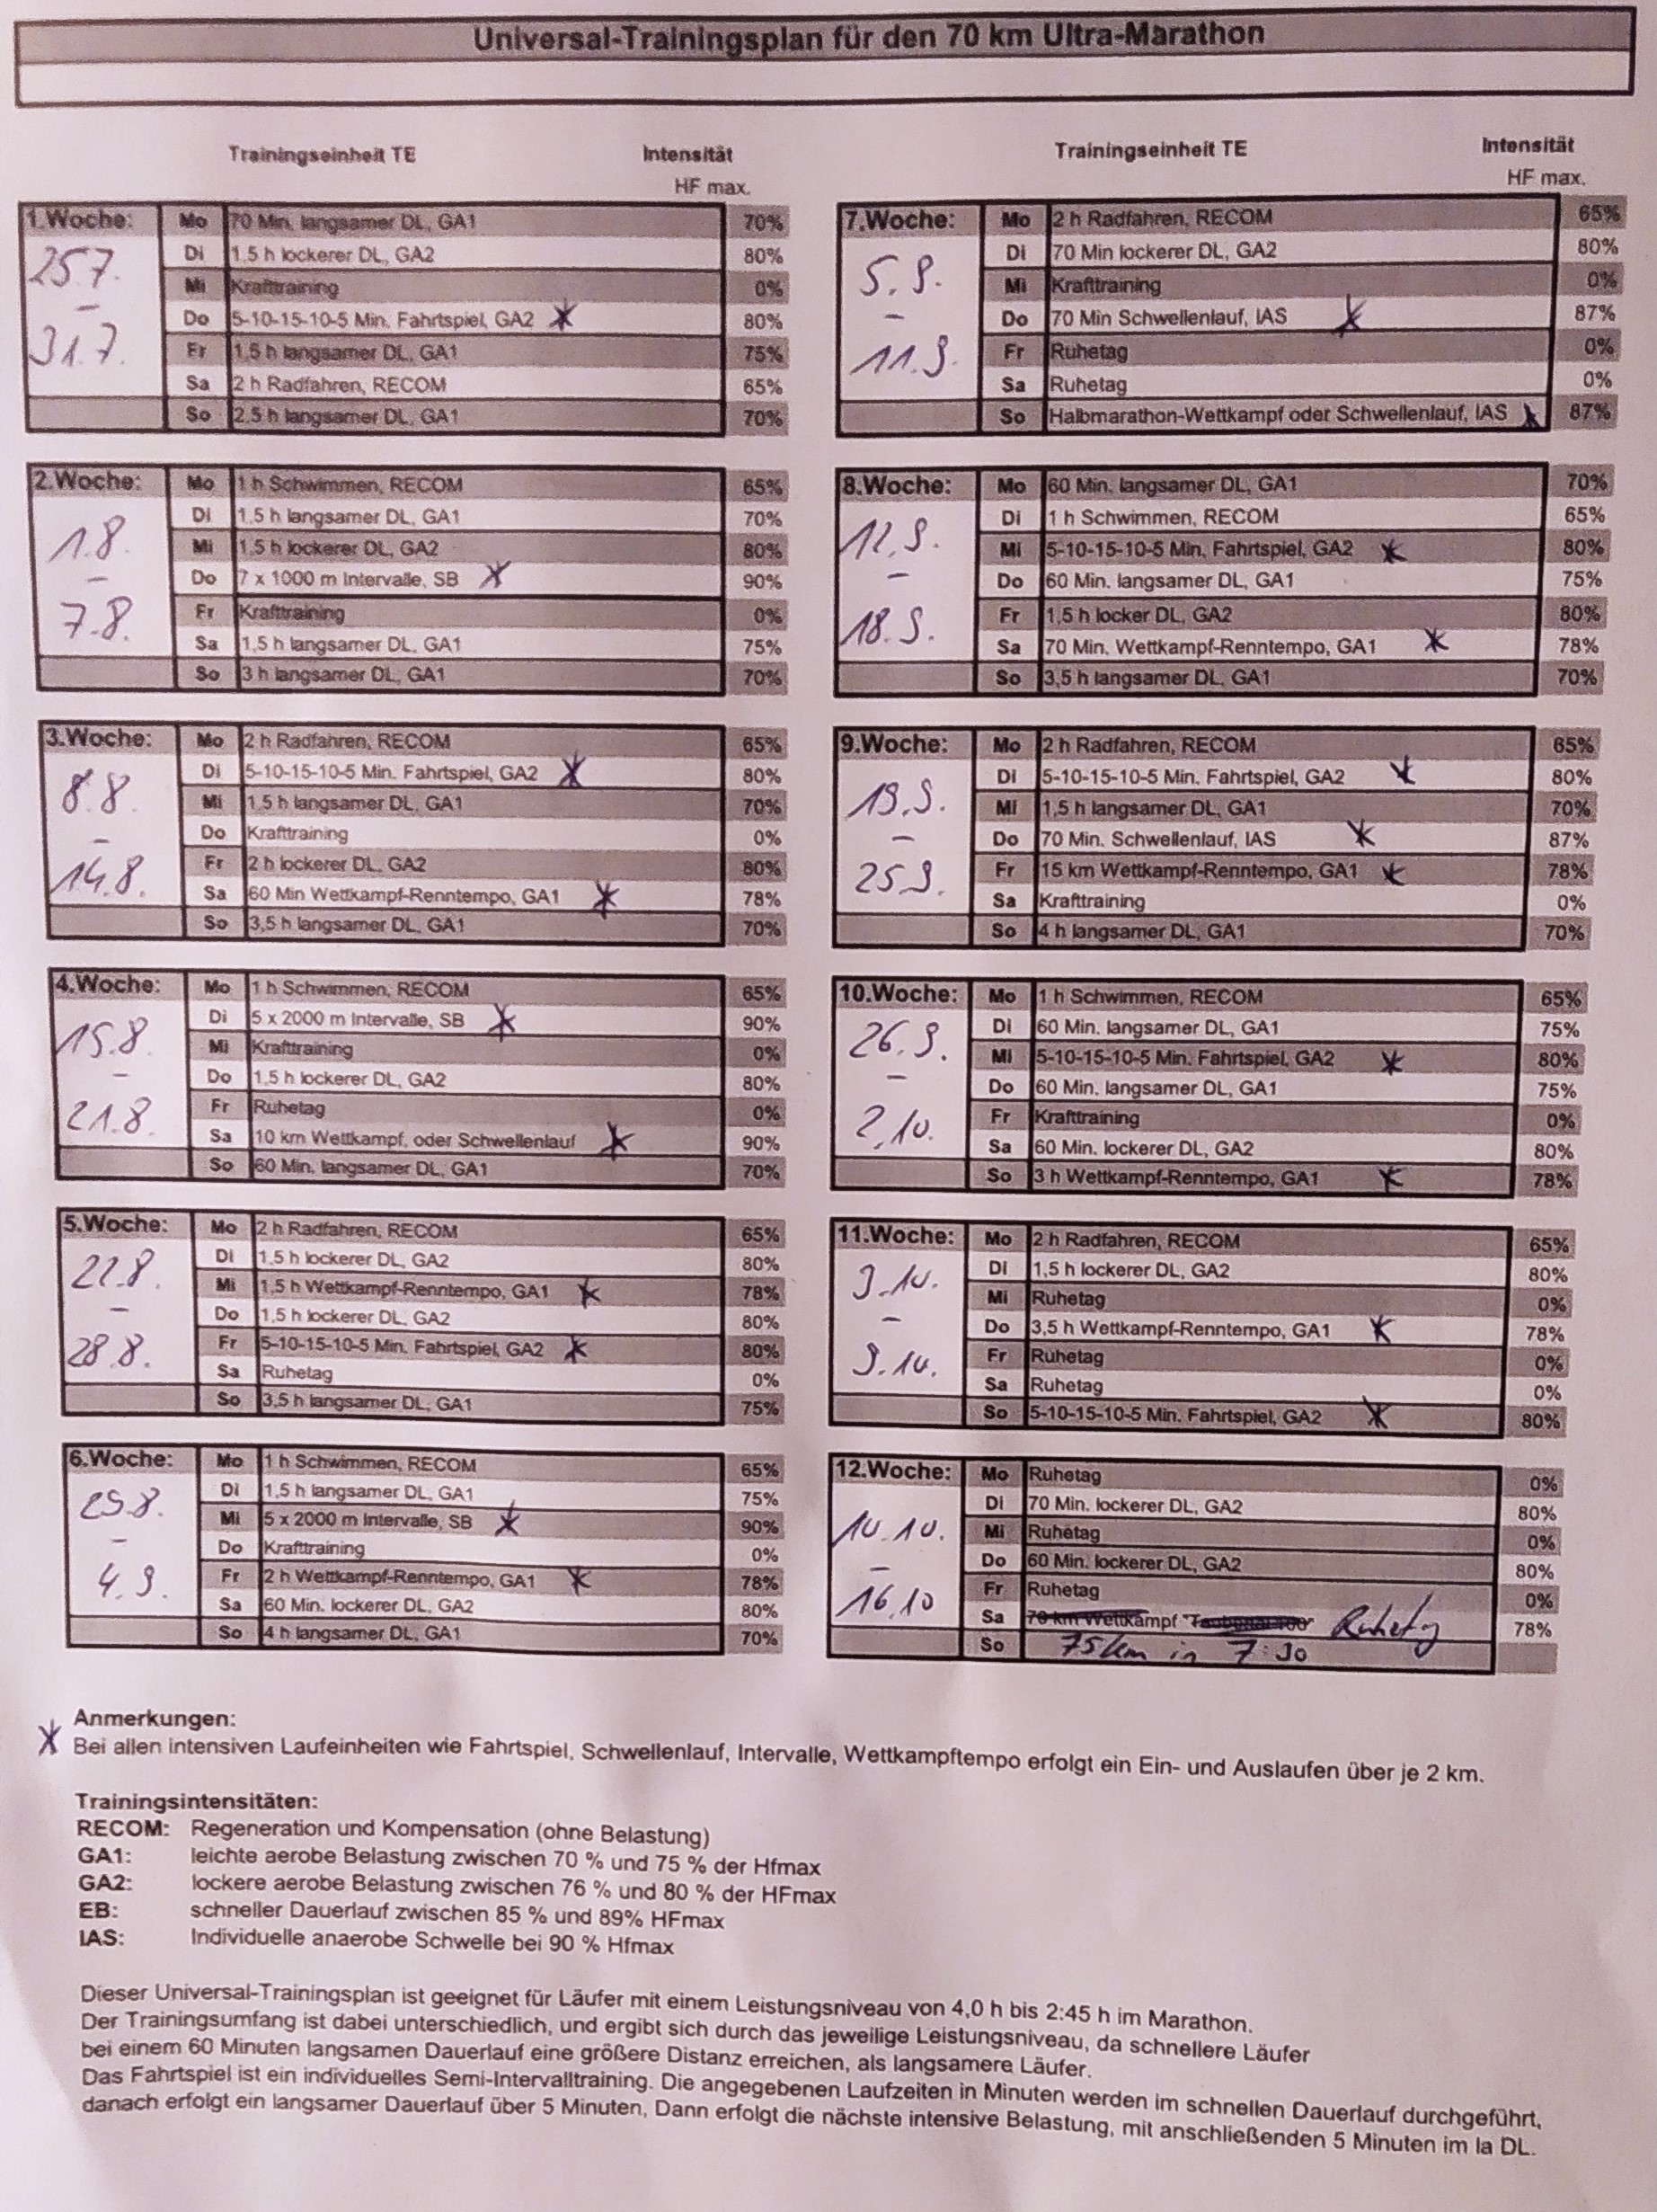 Universal-Trainingsplan für den 70 km Ultra-Marathon
Trainingseinheit TE Intensität
HF max.
1.Woche: Mo 70 Min. langsamer DL, GA1 70%
25.7. Di 1,5 h lockerer DL, GA2 80%
– Mi Krafttraining 0%
Do 5-10-15-10-5 Min. Fahrtspiel, GA2 * 80%
31.7. Fr 1,5 h langsamer DL, GA1 75%
Sa 2 h Radfahren, RECOM 65%
So 2,5 h langsamer DL, GA1 70%
2.Woche: Mo 1 h Schwimmen, RECOM 65%
1.8. Di 1,5 h langsamer DL, GA1 70%
Mi 1,5 h lockerer DL, GA2 80%
– Do 7 x 1000 m Intervalle, SB * 90%
7.8. Fr Krafttraining 0%
Sa 1,5 h langsamer DL, GA1 75%
So 3 h langsamer DL, GA1 70%
3.Woche: Mo 2 h Radfahren, RECOM 65%
8.8. Di 5-10-15-10-5 Min. Fahrtspiel, GA2 * 80%
Mi 1,5 h langsamer DL, GA1 70%
– Do Krafttraining 0%
14.8. Fr 2 h lockerer DL, GA2 80%
Sa 60 Min Wettkampf-Renntempo, GA1 * 78%
So 3,5 h langsamer DL, GA1 70%
4.Woche: Mo 1 h Schwimmen, RECOM 65%
15.8. Di 5 x 2000 m Intervalle, SB * 90%
Mi Krafttraining 0%
– Do 1,5 h lockerer DL, GA2 80%
21.8. Fr Ruhetag 0%
Sa 10 km Wettkampf, oder Schwellenlauf * 90%
So 60 Min. langsamer DL, GA1 70%
5.Woche: Mo 2 h Radfahren, RECOM 65%
22.8. Di 1,5 h lockerer DL, GA2 80%
Mi 1,5 h Wettkampf-Renntempo, GA1 * 78%
– Do 1,5 h lockerer DL, GA2 80%
28.8. Fr 5-10-15-10-5 Min. Fahrtspiel, GA2 * 80%
Sa Ruhetag 0%
So 3,5 h langsamer DL, GA1 75%
6.Woche: Mo 1 h Schwimmen, RECOM 65%
29.8. Di 1,5 h langsamer DL, GA1 75%
Mi 5 x 2000 m Intervalle, SB * 90%
– Do Krafttraining 0%
4.9. Fr 2 h Wettkampf-Renntempo, GA1 * 78%
Sa 60 Min. lockerer DL, GA2 80%
So 4 h langsamer DL, GA1 70%
Trainingseinheit TE Intensität
HF max.
7.Woche: Mo 2 h Radfahren, RECOM 65%
5.9. Di 70 Min lockerer DL, GA2 80%
Mi Krafttraining 0%
– Do 70 Min Schwellenlauf, IAS * 87%
11.9. Fr Ruhetag 0%
Sa Ruhetag 0%
So Halbmarathon-Wettkampf oder Schwellenlauf, IAS * 87%
8.Woche: Mo 60 Min. langsamer DL, GA1 70%
12.9. Di 1 h Schwimmen, RECOM 65%
Mi 5-10-15-10-5 Min. Fahrtspiel, GA2 * 80%
– Do 60 Min. langsamer DL, GA1 75%
18.9. Fr 1,5 h locker DL, GA2 80%
Sa 70 Min. Wettkampf-Renntempo, GA1 * 78%
So 3,5 h langsamer DL, GA1 70%
9.Woche: Mo 2 h Radfahren, RECOM 65%
19.9. Di 5-10-15-10-5 Min. Fahrtspiel, GA2 * 80%
Mi 1,5 h langsamer DL, GA1 70%
– Do 70 Min. Schwellenlauf, IAS * 87%
25.9. Fr 15 km Wettkampf-Renntempo, GA1 * 78%
Sa Krafttraining 0%
So 4 h langsamer DL, GA1 70%
10.Woche: Mo 1 h Schwimmen, RECOM 65%
26.9. Di 60 Min. langsamer DL, GA1 75%
Mi 5-10-15-10-5 Min. Fahrtspiel, GA2 * 80%
– Do 60 Min. langsamer DL, GA1 75%
2.10. Fr Krafttraining 0%
Sa 60 Min. lockerer DL, GA2 80%
So 3 h Wettkampf-Renntempo, GA1 * 78%
11.Woche: Mo 2 h Radfahren, RECOM 65%
3.10. Di 1,5 h lockerer DL, GA2 80%
Mi Ruhetag 0%
– Do 3,5 h Wettkampf-Renntempo, GA1 * 78%
9.10. Fr Ruhetag 0%
Sa Ruhetag 0%
So 5-10-15-10-5 Min. Fahrtspiel, GA2 * 80%
12.Woche: Mo Ruhetag 0%
10.10. Di 70 Min. lockerer DL, GA2 80%
Mi Ruhetag 0%
– Do 60 Min. lockerer DL, GA2 80%
16.10 Fr Ruhetag 0%
Sa 70 km Wettkampf Ruhetag 78%
So 75 km in 7:30
Anmerkungen:
* Bei allen intensiven Laufeinheiten wie Fahrtspiel, Schwellenlauf, Intervalle, Wettkampftempo erfolgt ein Ein- und Auslaufen über je 2 km.
Trainingsintensitäten:
RECOM: Regeneration und Kompensation (ohne Belastung)
GA1: leichte aerobe Belastung zwischen 70 % und 75 % der Hfmax
GA2: lockere aerobe Belastung zwischen 76 % und 80 % der HFmax
EB: schneller Dauerlauf zwischen 85 % und 89% HFmax
IAS: Individuelle anaerobe Schwelle bei 90 % Hfmax
Dieser Universal-Trainingsplan ist geeignet für Läufer mit einem Leistungsniveau von 4,0 h bis 2:45 h im Marathon.
Der Trainingsumfang ist dabei unterschiedlich, und ergibt sich durch das jeweilige Leistungsniveau, da schnellere Läufer
bei einem 60 Minuten langsamen Dauerlauf eine größere Distanz erreichen, als langsamere Läufer.
Das Fahrtspiel ist ein individuelles Semi-Intervalltraining. Die angegebenen Laufzeiten in Minuten werden im schnellen Dauerlauf durchgeführt,
danach erfolgt ein langsamer Dauerlauf über 5 Minuten, Dann erfolgt die nächste intensive Belastung, mit anschließenden 5 Minuten im la DL.